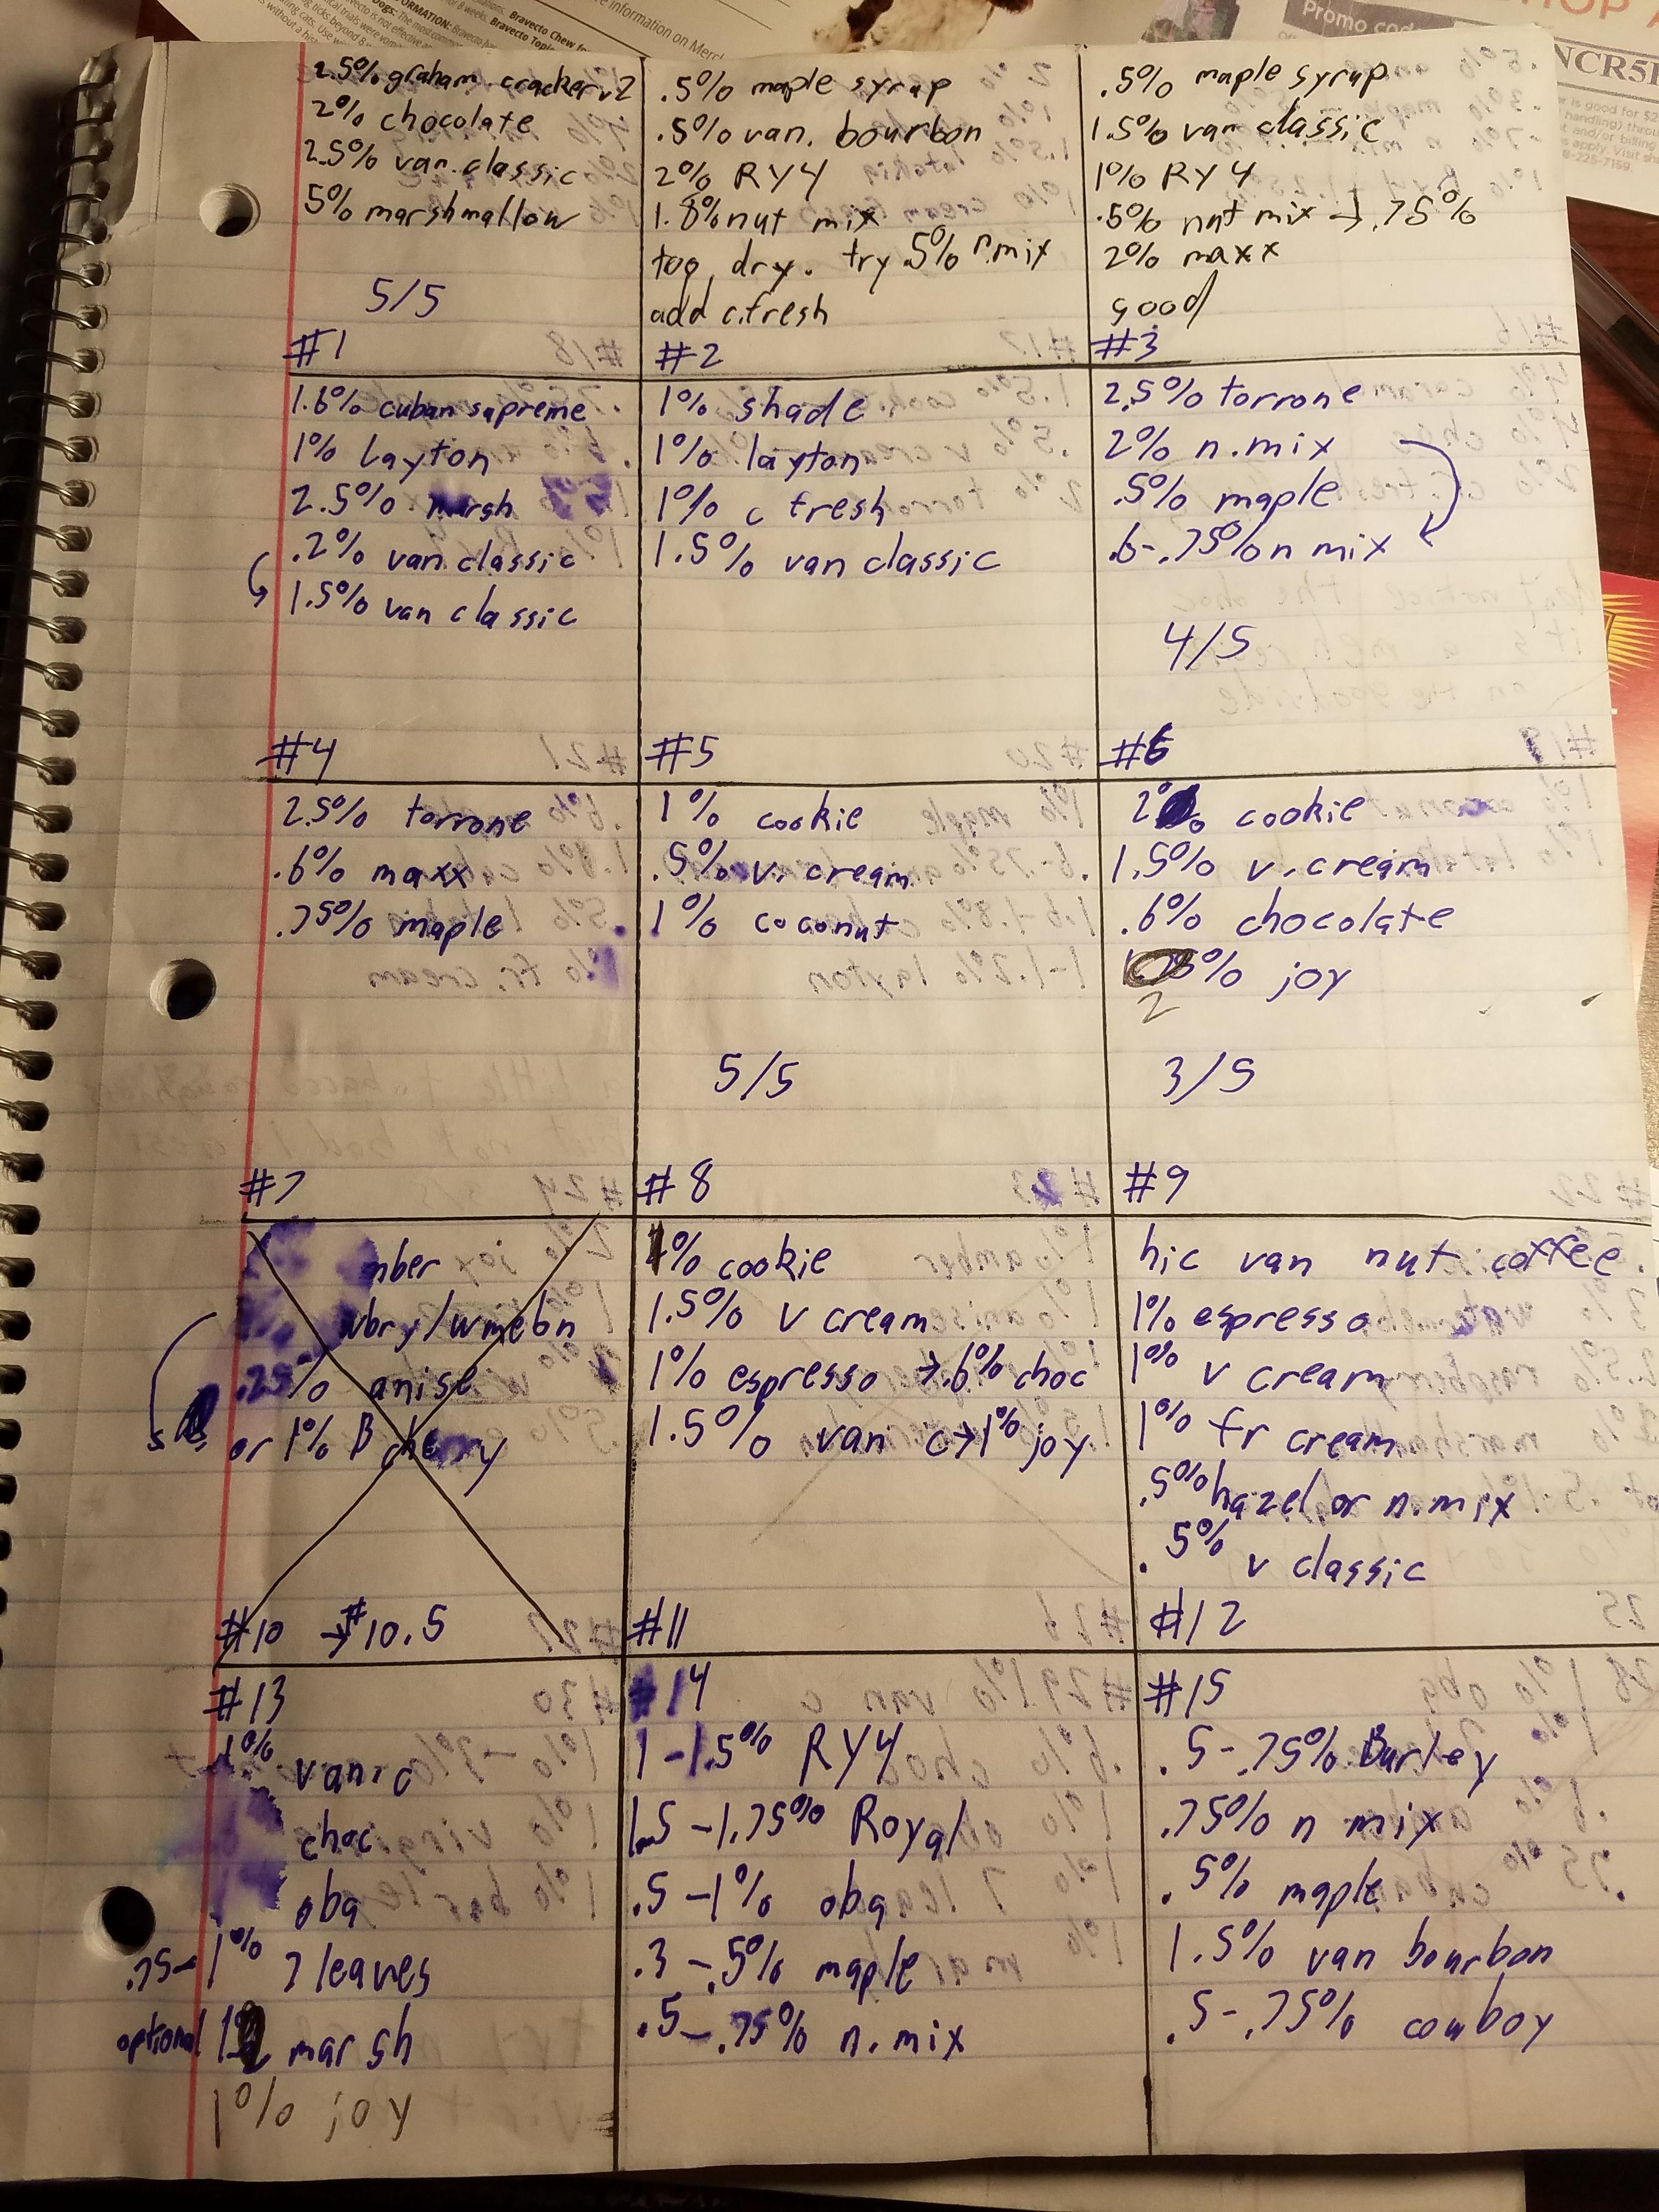 information on Merc
Promo cod
SHOP A
NCR5
2.5% graham cracker v2
2% chocolate
2.5% van. classic
5% marshmallow
5/5
#1
.5% maple syrup
.5% van. bourbon
2% RY4
1.8% nut mix
too dry. try .5% n.mix
add c.fresh
#2
.5% maple syrup
1.5% van classic
1% RY4
.5% nut mix → .75%
2% maxx
good
#3
1.6% cuban supreme
1% layton
2.5% marsh
.2% van.classic
1.5% van classic
#4
1% shade
1% layton
1% c fresh
1.5% van classic
#5
2.5% torrone
2% n.mix
.5% maple
.6-.75% n mix
4/5
#6
2.5% torrone
.6% maxx
.75% maple
#7
1% cookie
.5% v. cream
1% coconut
5/5
#8
2% cookie
1.5% v. cream
.6% chocolate
% joy
2
3/5
#9
mber
wbry/wmeln
.25% anise
or 1% B cherry
#10 → #10.5
1% cookie
1.5% v cream
1% espresso → .6% choc
1.5% van c → 1% joy
#11
hic van nut coffee.
1% espresso
1% v cream
1% fr cream
.5% hazel or n.mix
.5% v classic
#12
#13
1% van.c
choc
oba
.75-1% 7 leaves
optional 1% marsh
1% joy
#14
1-1.5% RY4
1.5-1.75% Royal
.5-1% oba
.3-.5% maple
.5-.75% n.mix
#15
.5-.75% Burley
.75% n mix
.5% maple
1.5% van bourbon
.5-.75% cowboy